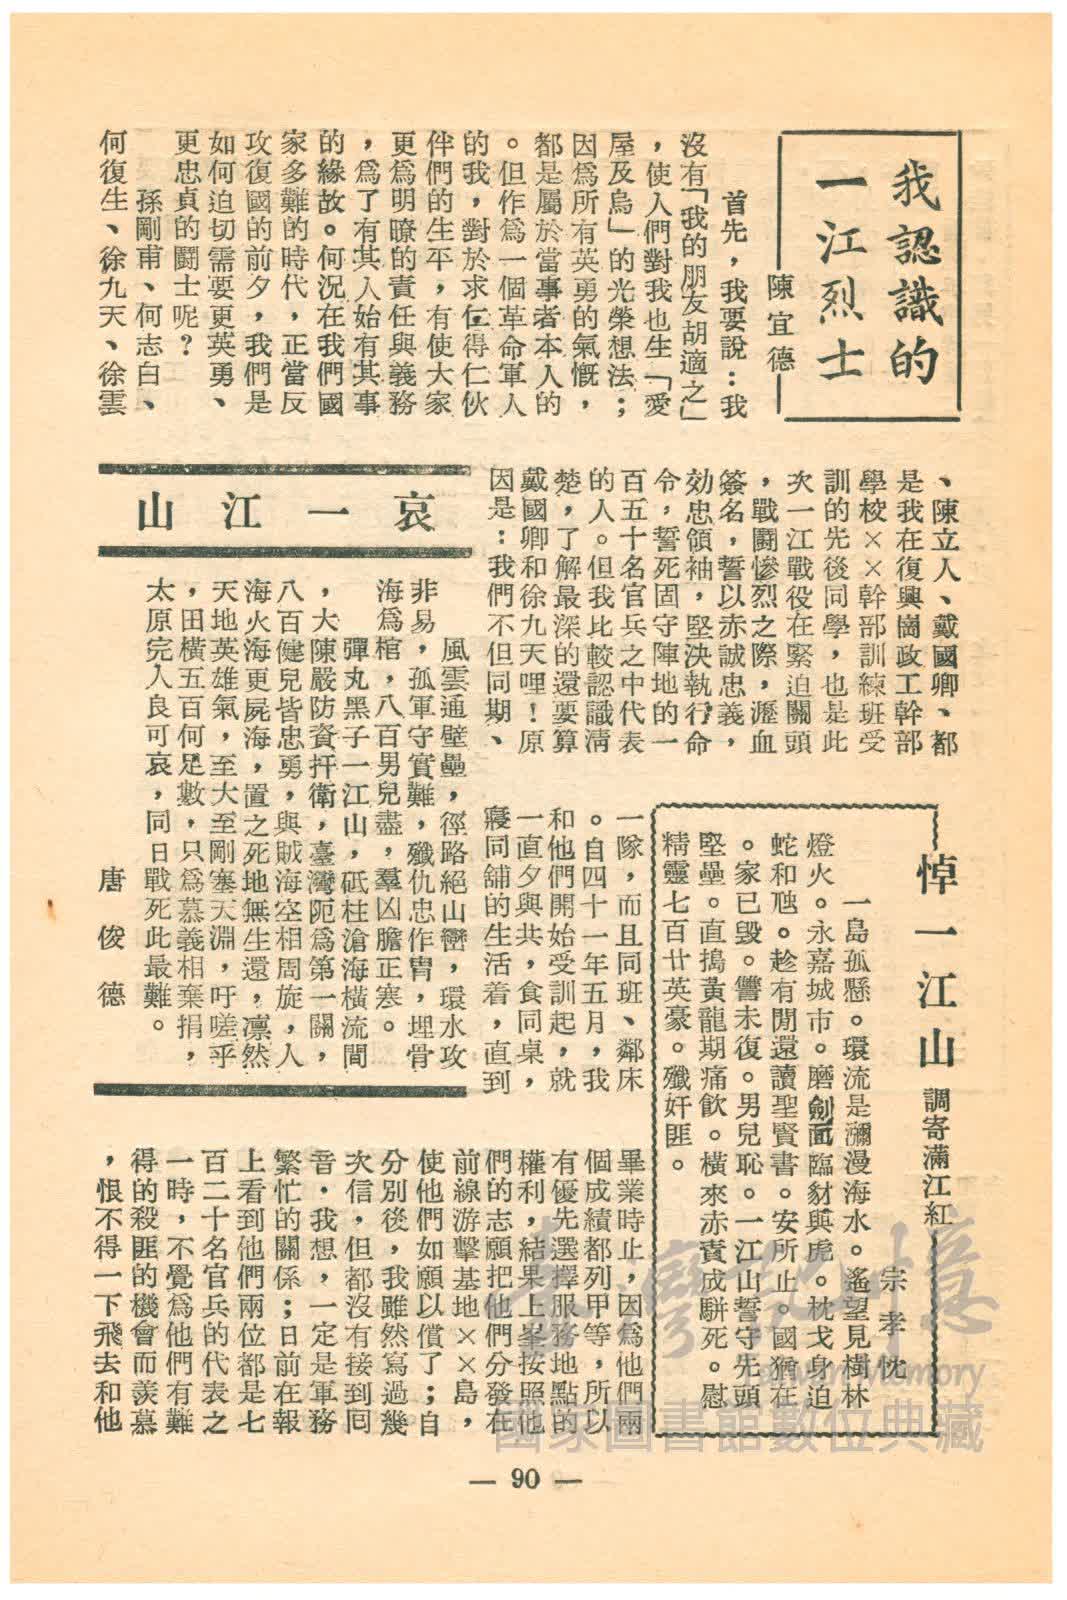 我認識的
一江烈士
陳宜德
首先，我要說：我
沒有「我的朋友胡適之」
，使人們對我也生「愛
屋及烏」的光榮想法；
因爲所有英勇的氣慨，
都是屬於當事者本人的
。但作爲一個革命軍人
的我，對於求仁得仁伙
伴們的生平，有使大家
更爲明瞭的責任與義務
，爲了有其人始有其事
的緣故。何況在我們國
家多難的時代，正當反
攻復國的前夕，我們是
如何迫切需要更英勇、
更忠貞的鬪士呢？
孫剛甫、何志白、
何復生、徐九天、徐雲
、陳立人、戴國卿、都
是我在復興崗政工幹部
學校××幹部訓練班受
訓的先後同學，也是此
次一江戰役在緊迫關頭
，戰鬪慘烈之際，瀝血
簽名，誓以赤誠忠義，
効忠領袖，堅決執行命
令，誓死固守陣地的一
百五十名官兵之中代表
的人。但我比較認識清
楚，了解最深的還要算
戴國卿和徐九天哩！原
因是：我們不但同期、
一隊，而且同班、鄰床
。自四十一年五月，我
和他們開始受訓起，就
一直夕與共，食同桌，
寢同舖的生活着，直到
畢業時止，因爲他們兩
個成績都列甲等，所以
有優先選擇服務地點的
權利，結果上峯按照他
們的志願把他們分發在
前線游擊基地××島，
使他們如願以償了；自
分別後，我雖然寫過幾
次信，但都沒有接到囘
音，我想，一定是軍務
繁忙的關係；日前在報
上看到他們兩位都是七
百二十名官兵的代表之
一時，不覺爲他們有難
得的殺匪的機會而羨慕
，恨不得一下飛去和他
哀一江山
風雲通壁壘，徑路絕山巒，環水攻
非易，孤軍守實難，殲仇忠作冑，埋骨
海爲棺，八百男兒盡，羣凶膽正寒。
彈丸黑子一江山，砥柱滄海橫流間
，大陳嚴防資扞衛，臺灣阨爲第一關，
八百健兒皆忠勇，與賊海空相周旋，人
海火海更屍海，置之死地無生還，凛然
天地英雄氣，至大至剛塞天淵，吁嗟乎
，田橫五百何足數，只爲慕義相棄捐，
太原完人良可哀，同日戰死此最難。
唐俊德
悼一江山 調寄滿江紅
宗孝忱
一島孤懸。環流是瀰漫海水。遙望見樹林
燈火。永嘉城市。磨劍面臨豺與虎。枕戈身迫
蛇和虺。趁有閒還讀聖賢書。安所止。國猶在
。家已毀。讐未復。男兒恥。一江山誓守先頭
堅壘。直搗黃龍期痛飲。橫來赤寇成駢死。慰
精靈七百廿英豪。殲奸匪。
— 90 —
臺灣記憶
Taiwan Memory
國家圖書館數位典藏